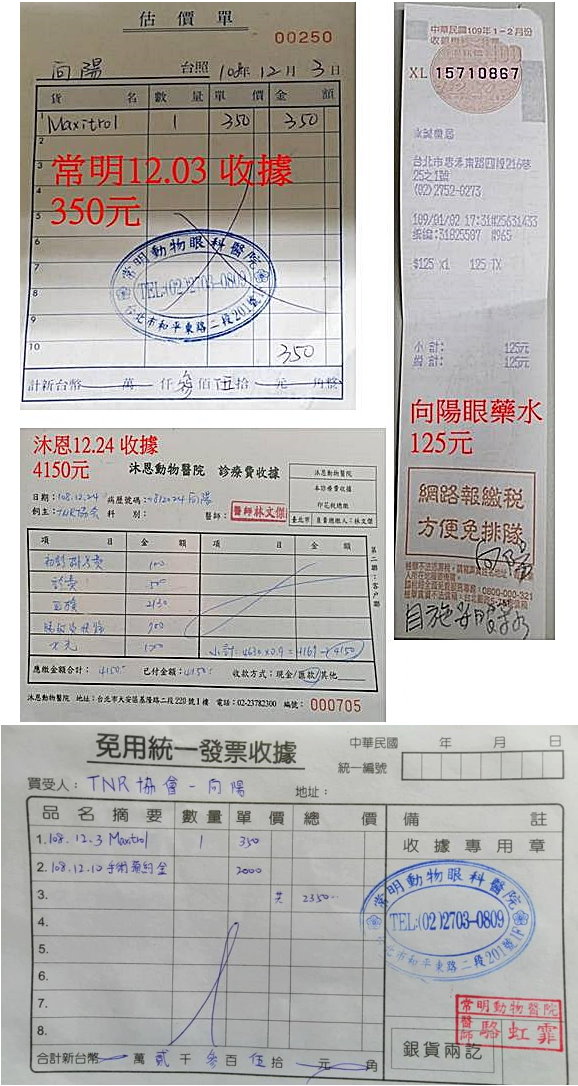 估價單
00250
向陽 台照 108年12月3日
貨 名 數 量 單 價 金 額
1 Maxitrol 1 350 350
2
3
常明12.03 收據
350元
4
5
6
7
8
9
10 350
常明動物眼科醫院
TEL:(02)2703-0809
台北市和平東路二段201號
計新台幣 萬 仟 叁 佰 伍 拾 元 角整
中華民國109年1-2月份
XL 15710867
台北市忠孝東路四段216巷
(02)2752-0273
109/01/02 17:31
$125 x1 125 TX
小 計: 125元
總 計: 125元
向陽眼藥水
125元
網路報繳稅
方便免排隊
0800-000-321
向陽
沐恩12.24 收據
4150元
沐恩動物醫院 診療費收據
沐恩動物醫院
本診療費收據
印花稅總繳
臺北市 負責總繳人:林文傑
日期:108.12.24 病歷號碼: 向陽
飼主:TNR協會 科 別: 醫師: 醫師林文傑
項 目 金 額 項 目 金 額
初診掛號費 100
診費 500
血檢 2130
小計: 4630x0.9=4167→4150
應繳金額合計:4150 已付金額:4150 收款方式:現金/匯款/其他
沐恩動物醫院 地址:台北市大安區基隆路二段220號1樓 電話:02-23782300 編號: 000705
免用統一發票收據
中華民國 年 月 日
統一編號
買受人:TNR協會-向陽 地址:
品名摘要 數量 單價 總價 備註
收據專用章
1. 108.12.3 Maxitrol 1 350
2. 108.12.10 手術預約金 2000
3. 共 2350
4.
5.
6.
7.
8.
常明動物眼科醫院
TEL:(02)2703-0809
台北市和平東路二段201號1F
常明動物醫院
醫師 駱虹霏
銀貨兩訖
合計新台幣 萬 貳 千 叁 百 伍 拾 元 角